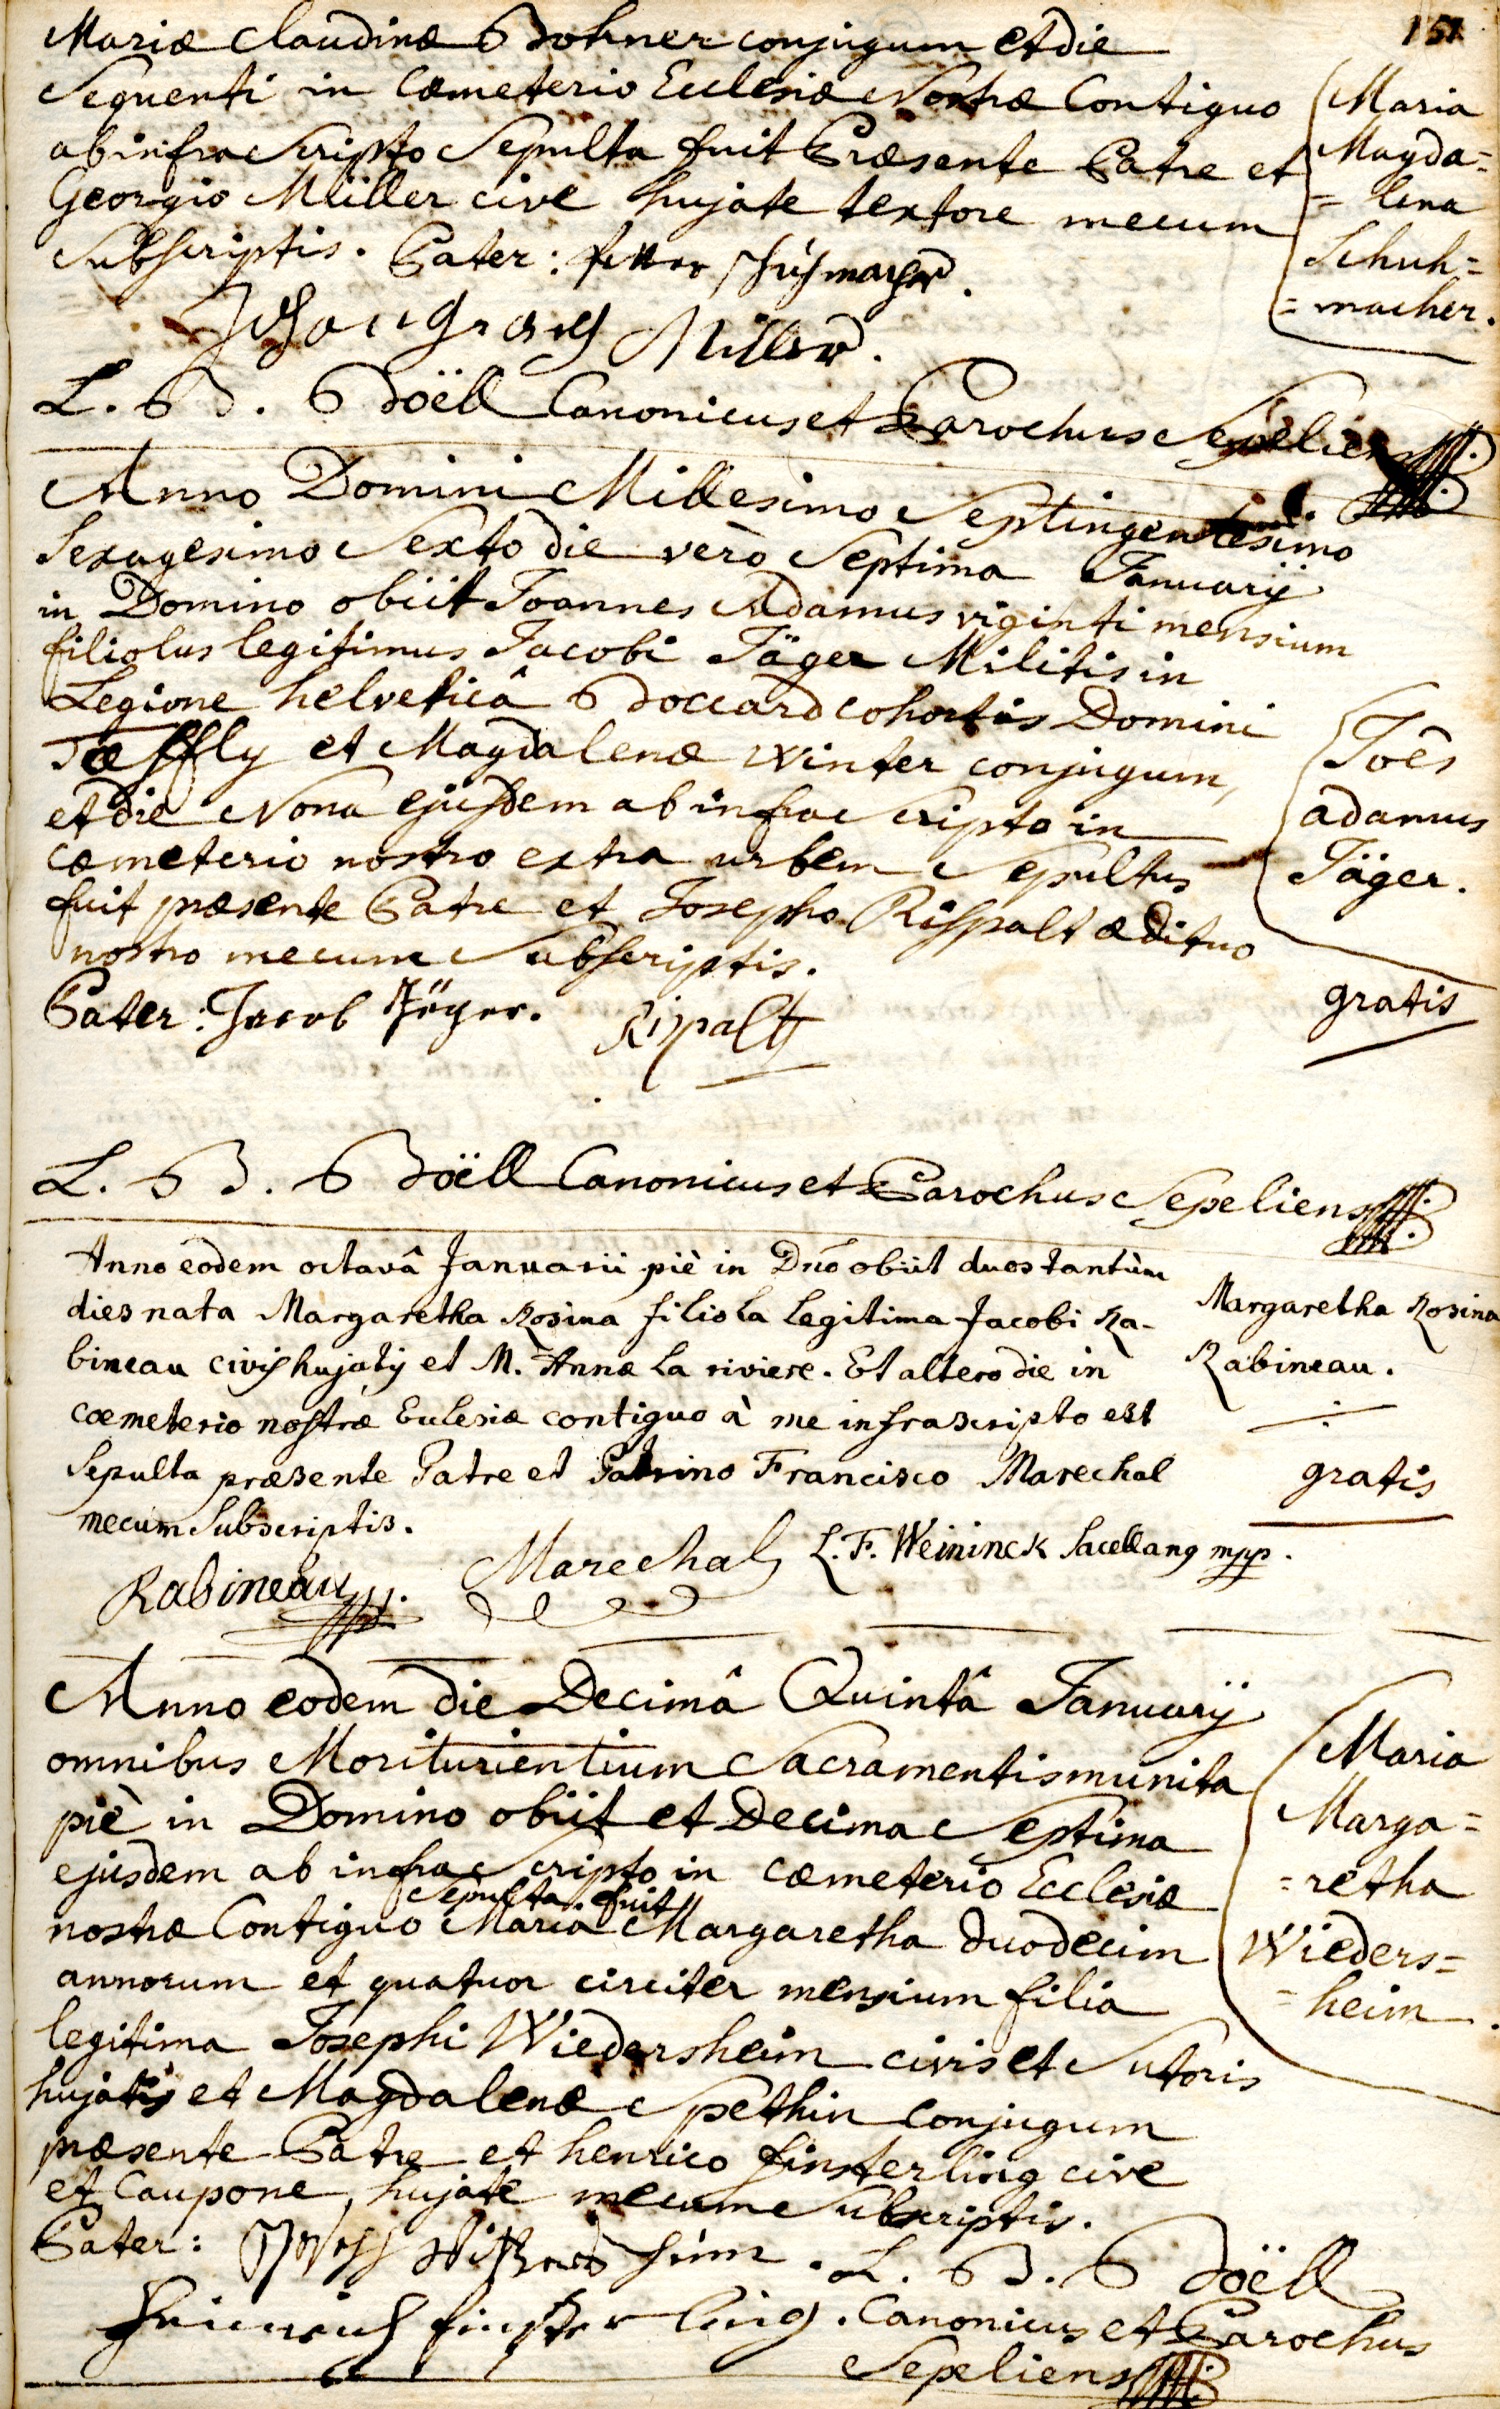 151
Mariæ Claudinæ Bohner conjugum et die
Sequenti in Cœmeterio Ecclesiæ Nostræ Contiguo
ab infra Scripto Sepulta fuit Præsente Patre et
Georgio Müller cive hujate textore mecum
Subscriptis. Pater: Schuhmacher.
Maria
Magda=
=lena
Schuh=
=macher.
Johan Georg Miller.
L. B. Böell Canonicus et Parochus Sepeliens
Anno Domini Millesimo Septingentesimo
Sexagesimo Sexto die verò Septima Januarij
in Domino obiit Joannes Adamus viginti mensium
filiolus legitimus Jacobi Jäger Militis in
Legione helveticâ Boccard cohortis Domini
Tæffly et Magdalenæ Winter conjugum,
et die Nona ejusdem ab infra Scripto in
Cœmeterio nostro extra urbem Sepultus
fuit præsente Patre et Josepho Rispalt ædituo
nostro mecum Subscriptis.
Joês
adamus
Jäger.
gratis
Pater: Jacob Jäger. Rispalt
L. B. Böell Canonicus et Parochus Sepeliens
Anno eodem octavâ Januarii piè in Dnō obiit duos tantùm
dies nata Margaretha Rosina filiola legitima Jacobi Ra-
bineau civis hujatis et M. Annæ La riviere. Et altero die in
cœmeterio nostræ Eclesiæ contiguo à me infrascripto est
Sepulta præsente Patre et Patrino Francisco Marechal
mecum Subscriptis.
Margaretha Rosina
Rabineau.
gratis
Rabineau. Marechal L. F. Weininck Sacellang mpp.
Anno eodem die Decimâ Quintâ Januarij
omnibus Moriturientium Sacramentis munita
piè in Domino obiit et Decima Septima
ejusdem ab infra Scripto in Cœmeterio Ecclesiæ
Sepulta fuit
nostræ Contiguo Maria Margaretha duodecim
annorum et quatuor circiter mensium filia
legitima Josephi Wiedersheim civis et Sutoris
hujatis et Magdalenæ Spethin conjugum
præsente Patre et henrico finsterling cive
et Caupone hujate mecum Subscriptis.
Maria
Marga=
=retha
Wieders=
=heim.
Pater: Joseph . L. B. Böell
Heinrich finsterling. Canonicus et Parochus
Sepeliens